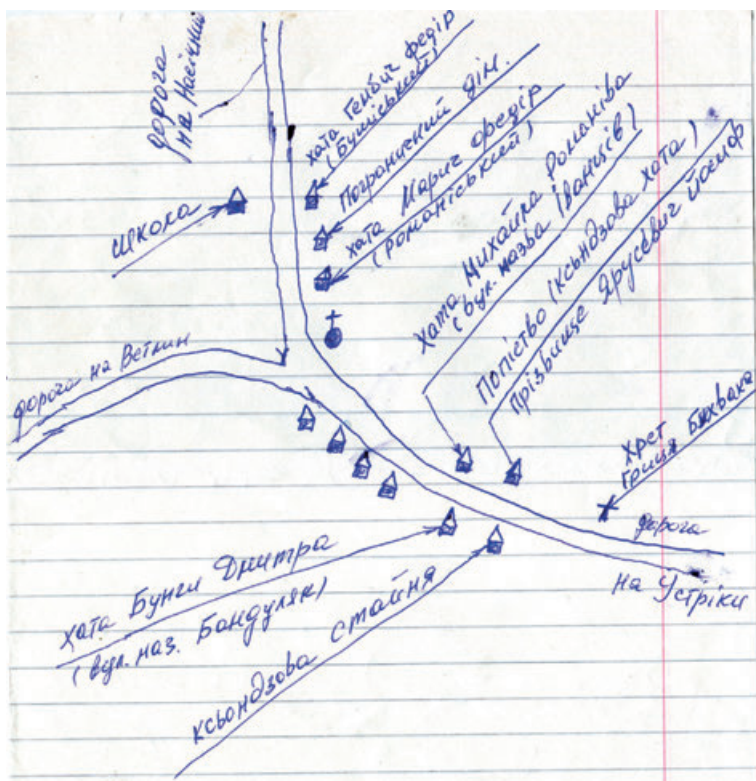 дорога
на Насічний
хата Генбич Федір
(Буміський)
Пограничний дім.
хата Марич Федір
(Романіський)
Хата Михайла Романіва
(вул. назва Іванців)
Попіство (Ксьондзова хата)
Прізвище Ярусевич Йосиф
Школа
дорога на Ветлин
Хрет
Гриця Бихвака
дорога
на Устріки
хата Бунги Дмитра
(вул. наз. Бандуляк)
ксьондзова стайня